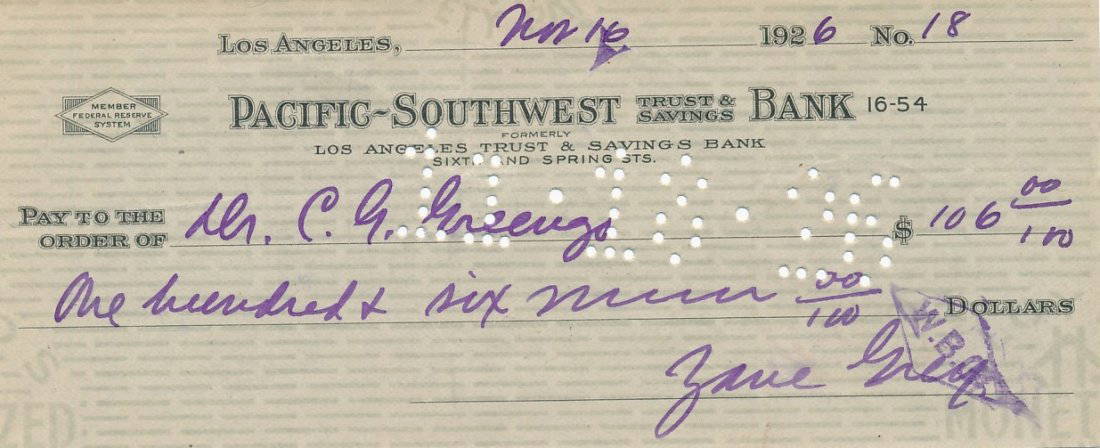 Los Angeles, Nov 16 1926 No. 18
MEMBER
FEDERAL RESERVE
SYSTEM
Pacific-Southwest Trust & Savings Bank 16-54
FORMERLY
LOS ANGELES TRUST & SAVINGS BANK
SIXTH AND SPRING STS.
Pay to the order of Dr. C. G. $ 106 00/100
One hundred & six 00/100 Dollars
W.B.
Zane Grey